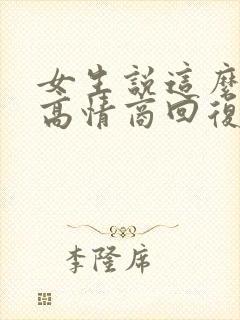 女生說這麼
高情商回復
李隆席